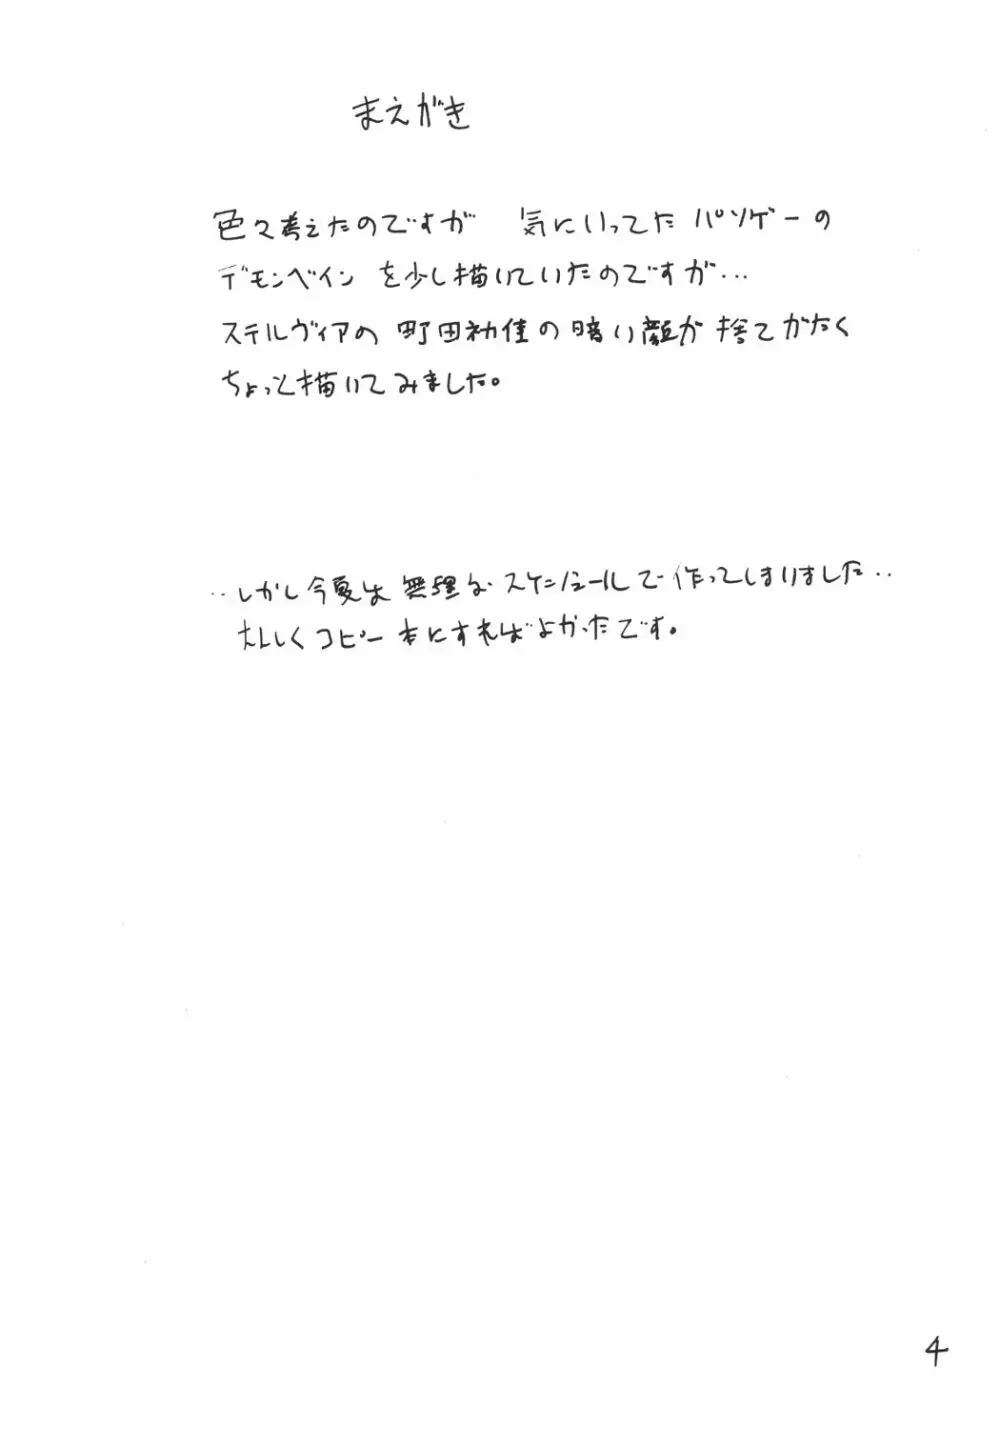 まえがき
色々考えたのですが 気にいってたパソゲーの
デモンベインを少し描いていたのですが…
ステルヴィアの町田初佳の暗い顔が捨てがたく
ちょっと描いてみました。
‥しかし今夏は無理なスケジュールで作ってしまいました‥
大人しくコピー本にすればよかったです。
4